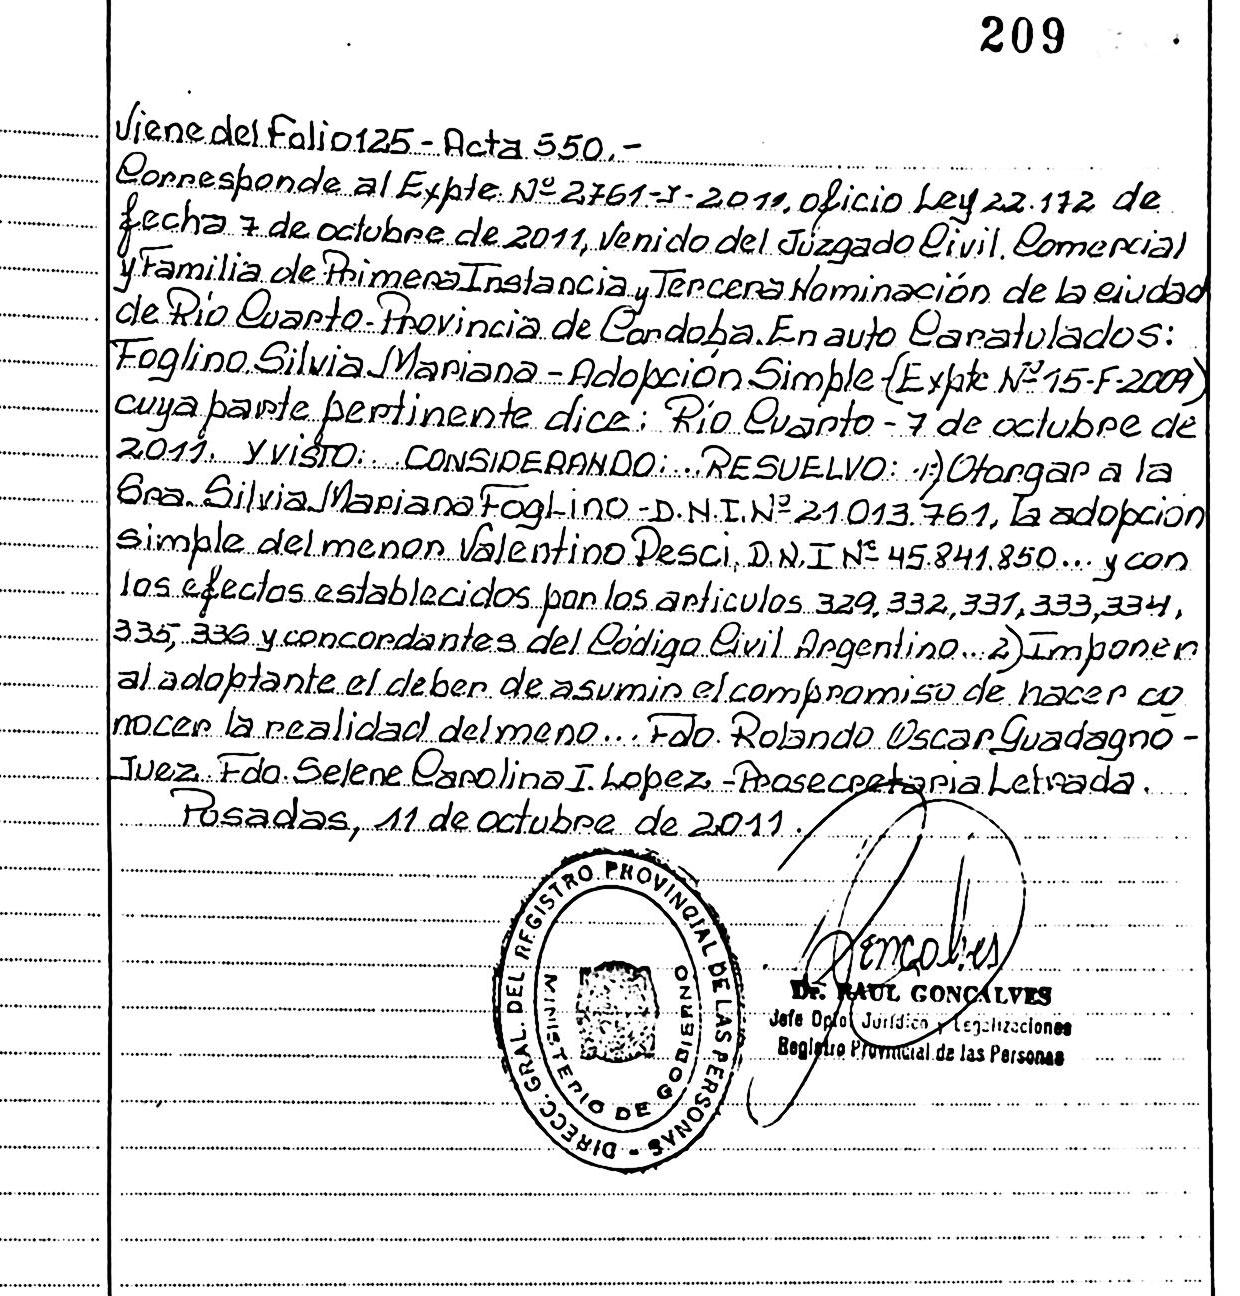 209
Viene del Folio 125 - Acta 550.-
Corresponde al Expte. Nº 2761-J-2011, oficio Ley 22.172 de
fecha 7 de octubre de 2011, venido del Juzgado Civil. Comercial
y Familia de Primera Instancia y Tercera Nominación de la ciudad
de Río Cuarto - Provincia de Cordoba. En auto Caratulados:
Foglino Silvia Mariana - Adopción Simple - (Expte Nº 15-F-2009)
cuya parte pertinente dice: Río Cuarto - 7 de octubre de
2011. Y VISTO: ... CONSIDERANDO: ... RESUELVO: 1:) Otorgar a la
Sra. Silvia Mariana Foglino - D.N.I. Nº 21.013.761, la adopción
simple del menor Valentino Pesci, D.N.I Nº 45.841.850... y con
los efectos establecidos por los articulos 329, 332, 331, 333, 334,
335, 336 y concordantes del Código Civil Argentino... 2) Imponer
al adoptante el deber de asumir el compromiso de hacer co
nocer la realidad del meno... Fdo. Rolando Oscar Guadagno -
Juez. Fdo. Selene Carolina I. Lopez - Prosecretaria Letrada.
Posadas, 11 de octubre de 2011.
DIRECC. GRAL. DEL REGISTRO PROVINCIAL DE LAS PERSONAS -
MINISTERIO DE GOBIERNO
Goncalves
Dr. RAUL GONCALVES
Jefe Dpto. Jurídico y Legalizaciones
Registro Provincial de las Personas